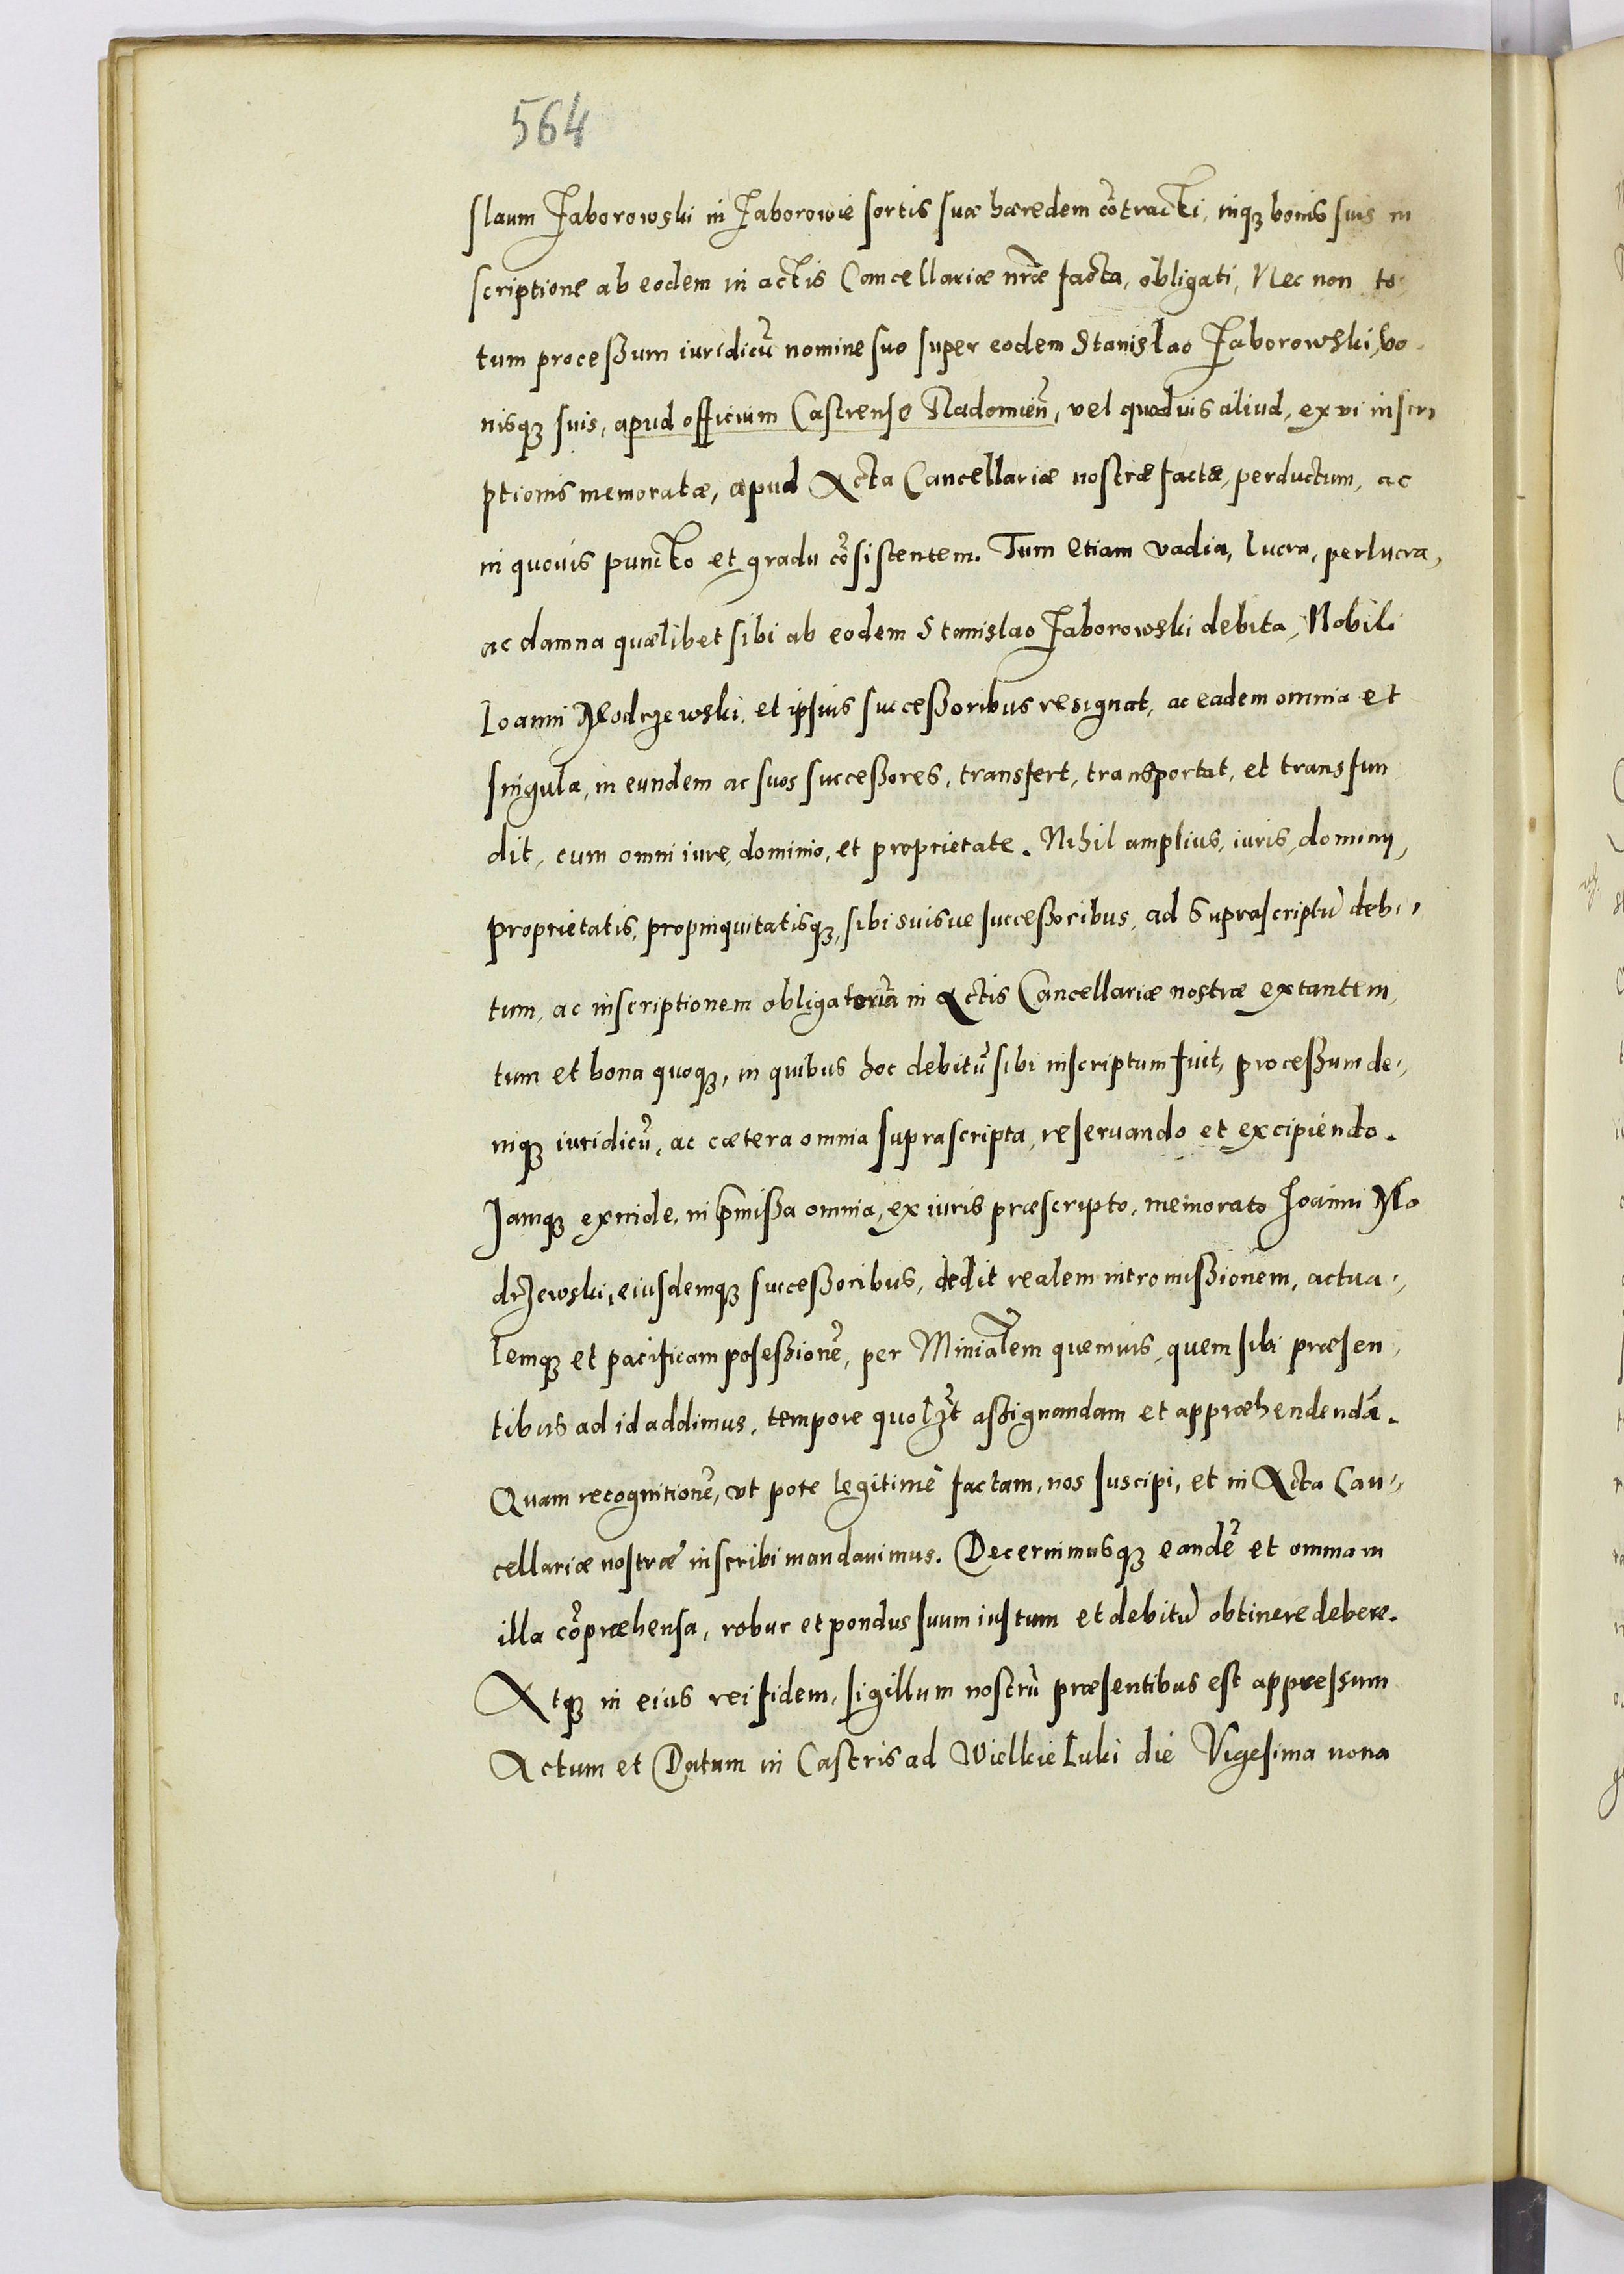 564
slaum Jaborowski in Jaborowie sortis suæ hæredem cõtracti, inqꝫ bonis suis in
scriptione ab eodem in actis Cancellariæ nr̃æ facta, obligati, Nec non to
tum proceßum iuridicũ nomine suo super eodem Stanislao Jaborowski, bo
nisqꝫ suis, apud officium Castrense Radomieñ, vel quoduis aliud, ex vi inscri
ptionis memoratæ, apud Acta Cancellariæ nostræ factæ, perductum, ac
in quouis puncto et gradu cõsistentem. Tum etiam vadia, lucra, perlucra,
ac damna quælibet sibi ab eodem Stanislao Jaborowski debita, Nobili
Ioanni Modrzewski, et ipsius succeßoribus resignat, ac eadem omnia et
singula, in eundem ac suos succeßores, transfert, transportat, et transfun
dit, cum omni iure, dominio, et proprietate. Nihil amplius, iuris, dominij,
proprietatis, propinquitatisqꝫ, sibi suisue succeßoribus, ad suprascriptũ debi-
tum, ac inscriptionem obligatoriã in Actis Cancellariæ nostræ extantem,
tum et bona quoqꝫ, in quibus hoc debitũ sibi inscriptum fuit, proceßum de-
niqꝫ iuridicũ, ac cætera omnia suprascripta, reseruando et excipiendo.
Iamqꝫ exinde, in p̃mißa omnia, ex iuris præscripto, memorato Ioanni Mo
drzewski, eiusdemqꝫ succeßoribus, dedit realem intromißionem, actua-
lemqꝫ et pacificam poseßionẽ, per Minĩalem quemuis, quem sibi præsen
tibus ad id addimus, tempore quolꝫt aßignandam et appræhendendã.
Quam recognitionẽ, vt pote legitimè factam, nos suscipi, et in Acta Can-
cellariæ nostræ inscribi mandauimus. Decernimusqꝫ eandẽ et omnia in
illa cõpræhensa, robur et pondus suum iustum et debitũ obtinere debere.
Atqꝫ in eius rei fidem, sigillum nostrũ præsentibus est appressum
Actum et Datum in Castris ad Wielkie Łuki die Vigesima nona